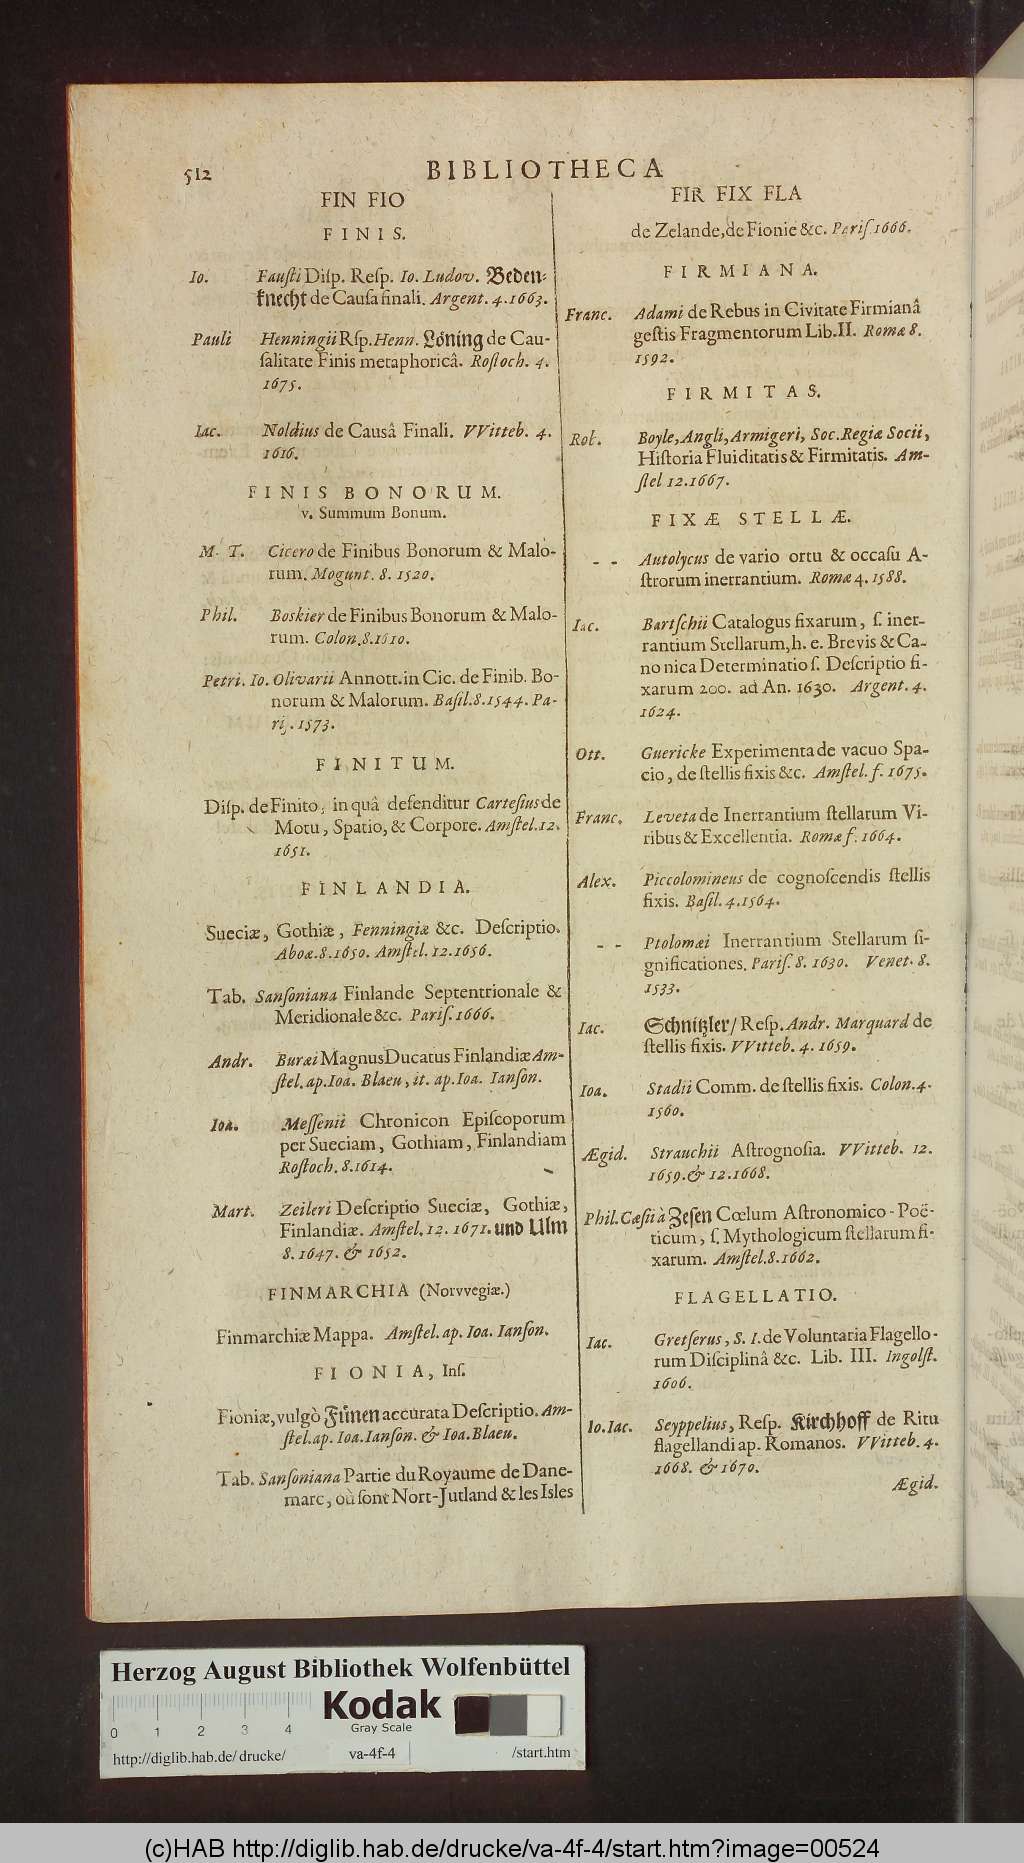 512
BIBLIOTHECA
FIN FIO
FINIS.
Io. Fausti Diſp. Reſp. Io. Ludov. Beden-
knecht de Cauſa finali. Argent. 4. 1663.
Pauli Henningii Rſp. Henn. Löning de Cau-
ſalitate Finis metaphoricâ. Roſtoch. 4.
1675.
Iac. Noldius de Causâ Finali. VVitteb. 4.
1616.
FINIS BONORUM.
v. Summum Bonum.
M. T. Cicero de Finibus Bonorum & Malo-
rum. Mogunt. 8. 1520.
Phil. Boskier de Finibus Bonorum & Malo-
rum. Colon. 8. 1610.
Petri. Io. Olivarii Annott. in Cic. de Finib. Bo-
norum & Malorum. Baſil. 8. 1544. Pa-
riſ. 1573.
FINITUM.
Diſp. de Finito, in quâ defenditur Carteſius de
Motu, Spatio, & Corpore. Amſtel. 12.
1651.
FINLANDIA.
Sueciæ, Gothiæ, Fenningiæ &c. Deſcriptio.
Aboæ. 8. 1650. Amſtel. 12. 1656.
Tab. Sanſoniana Finlande Septentrionale &
Meridionale &c. Pariſ. 1666.
Andr. Buræi Magnus Ducatus Finlandiæ Am-
ſtel. ap. Ioa. Blaeu, it. ap. Ioa. Ianſon.
Ioa. Meſſenii Chronicon Epiſcoporum
per Sueciam, Gothiam, Finlandiam
Roſtoch. 8. 1614.
Mart. Zeileri Deſcriptio Sueciæ, Gothiæ,
Finlandiæ. Amſtel. 12. 1671. und Ulm
8. 1647. & 1652.
FINMARCHIA (Norvvegiæ.)
Finmarchiæ Mappa. Amſtel. ap. Ioa. Ianſon.
FIONIA, Inſ.
Fioniæ, vulgò Fünen accurata Deſcriptio. Am-
ſtel. ap. Ioa. Ianſon. & Ioa. Blaeu.
Tab. Sanſoniana Partie du Royaume de Dane-
marc, où ſont Nort-Jutland & les Isles
FIR FIX FLA
de Zelande, de Fionie &c. Pariſ. 1666.
FIRMIANA.
Franc. Adami de Rebus in Civitate Firmianâ
geſtis Fragmentorum Lib. II. Romæ 8.
1592.
FIRMITAS.
Rob. Boyle, Angli, Armigeri, Soc. Regiæ Socii,
Hiſtoria Fluiditatis & Firmitatis. Am-
ſtel 12. 1667.
FIXÆ STELLÆ.
- - Autolycus de vario ortu & occaſu A-
ſtrorum inerrantium. Romæ 4. 1588.
Iac. Bartſchii Catalogus fixarum, ſ. iner-
rantium Stellarum, h. e. Brevis & Ca-
nonica Determinatio ſ. Deſcriptio fi-
xarum 200. ad An. 1630. Argent. 4.
1624.
Ott. Guericke Experimenta de vacuo Spa-
cio, de ſtellis fixis &c. Amſtel. f. 1675.
Franc. Leveta de Inerrantium ſtellarum Vi-
ribus & Excellentia. Romæ f. 1664.
Alex. Piccolomineus de cognoſcendis ſtellis
fixis. Baſil. 4. 1564.
- - Ptolomæi Inerrantium Stellarum ſi-
gnificationes. Pariſ. 8. 1630. Venet. 8.
1533.
Iac. Schnitzler/ Reſp. Andr. Marquard de
ſtellis fixis. VVitteb. 4. 1659.
Ioa. Stadii Comm. de ſtellis fixis. Colon. 4.
1560.
Ægid. Strauchii Aſtrognoſia. VVitteb. 12.
1659. & 12. 1668.
Phil. Cæſii à Zeſen Cœlum Aſtronomico-Poë-
ticum, ſ. Mythologicum ſtellarum fi-
xarum. Amſtel. 8. 1662.
FLAGELLATIO.
Iac. Gretſerus, S. I. de Voluntaria Flagello-
rum Diſciplinâ &c. Lib. III. Ingolſt.
1606.
Io. Iac. Seyppelius, Reſp. Kirchhoff de Ritu
flagellandi ap. Romanos. VVitteb. 4.
1668. & 1670.
Ægid.
Herzog August Bibliothek Wolfenbüttel
Kodak
Gray Scale
0 1 2 3 4
http://diglib.hab.de/drucke/ va-4f-4 /start.htm
(c)HAB http://diglib.hab.de/drucke/va-4f-4/start.htm?image=00524